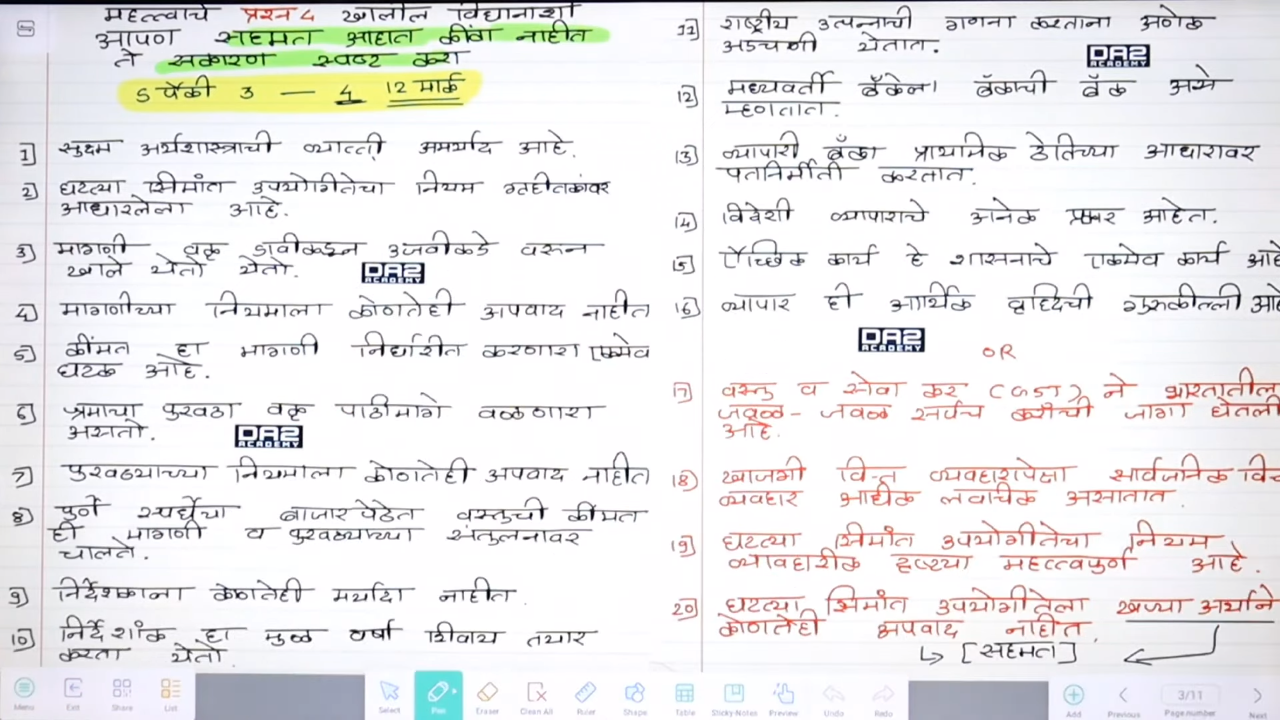 महत्त्वाचे प्रश्न 4 खालील विधानाशी
आपण सहमत आहात कींवा नाहीत
ते सकारण स्पष्ट करा
5 पैकी 3 — 4 12 मार्क
1] सुक्ष्म अर्थशास्त्राची व्याप्ती अमर्याद आहे.
2] घटत्या सिमांत उपयोगीतेचा नियम गृहीतकांवर
आधारलेला आहे.
3] मागणी वक्र डावीकडून उजवीकडे वरून
खाले येतो येतो.
DA2
ACADEMY
4] मागणीच्या नियमाला कोणतेही अपवाद नाहीत
5] कींमत हा मागणी निर्धारीत करणारा एकमेव
घटक आहे.
6] श्रमाचा पुरवठा वक्र पाठीमागे वळणारा
असतो.
DA2
ACADEMY
7] पुरवठ्याच्या नियमाला कोणतेही अपवाद नाहीत
8] पुर्ण स्पर्धेचा बाजारपेठेत वस्तुची कींमत
ही मागणी व पुरवठ्याच्या संतुलनावर
चालते.
9] निर्देशकाला कोणतेही मर्यादा नाहीत.
10] निर्देशांक हा मुळ वर्षा शिवाय तयार
करता येतो.
11] राष्ट्रीय उत्पन्नाची गणना करताना अनेक
अडचणी येतात.
DA2
ACADEMY
12] मध्यवर्ती बँकेला बँकाची बँक असे
म्हणतात.
13] व्यापारी बँका प्राथमिक ठेविच्या आधारावर
पतनिर्मीती करतात.
14] विदेशी व्यापाराचे अनेक प्रकार आहेत.
15] ऐच्छिक कार्य हे शासनाचे एकमेव कार्य आहे
16] व्यापार ही आर्थिक वृध्दिची गुरुकील्ली आहे
DA2
ACADEMY
OR
17] वस्तु व सेवा कर (GST) ने भारतातील
जवळ - जवळ सर्वच करांची जागा घेतली
आहे.
18] खाजगी वित्त व्यवहारापेक्षा सार्वजनिक वित्त
व्यवहार अधीक लवचिक असतात.
19] घटत्या सिमांत उपयोगीतेचा नियम
व्यावहारीक दृष्ट्या महत्त्वपुर्ण आहे.
20] घटत्या सिमांत उपयोगीतेला खऱ्या अर्थाने
कोणतेही अपवाद नाहीत.
↳ [सहमत]
Menu Exit Share List Select Pen Eraser Clean All Ruler Shape Table Sticky-Notes Preview Undo Redo Add Previous 3/11 Page number Next